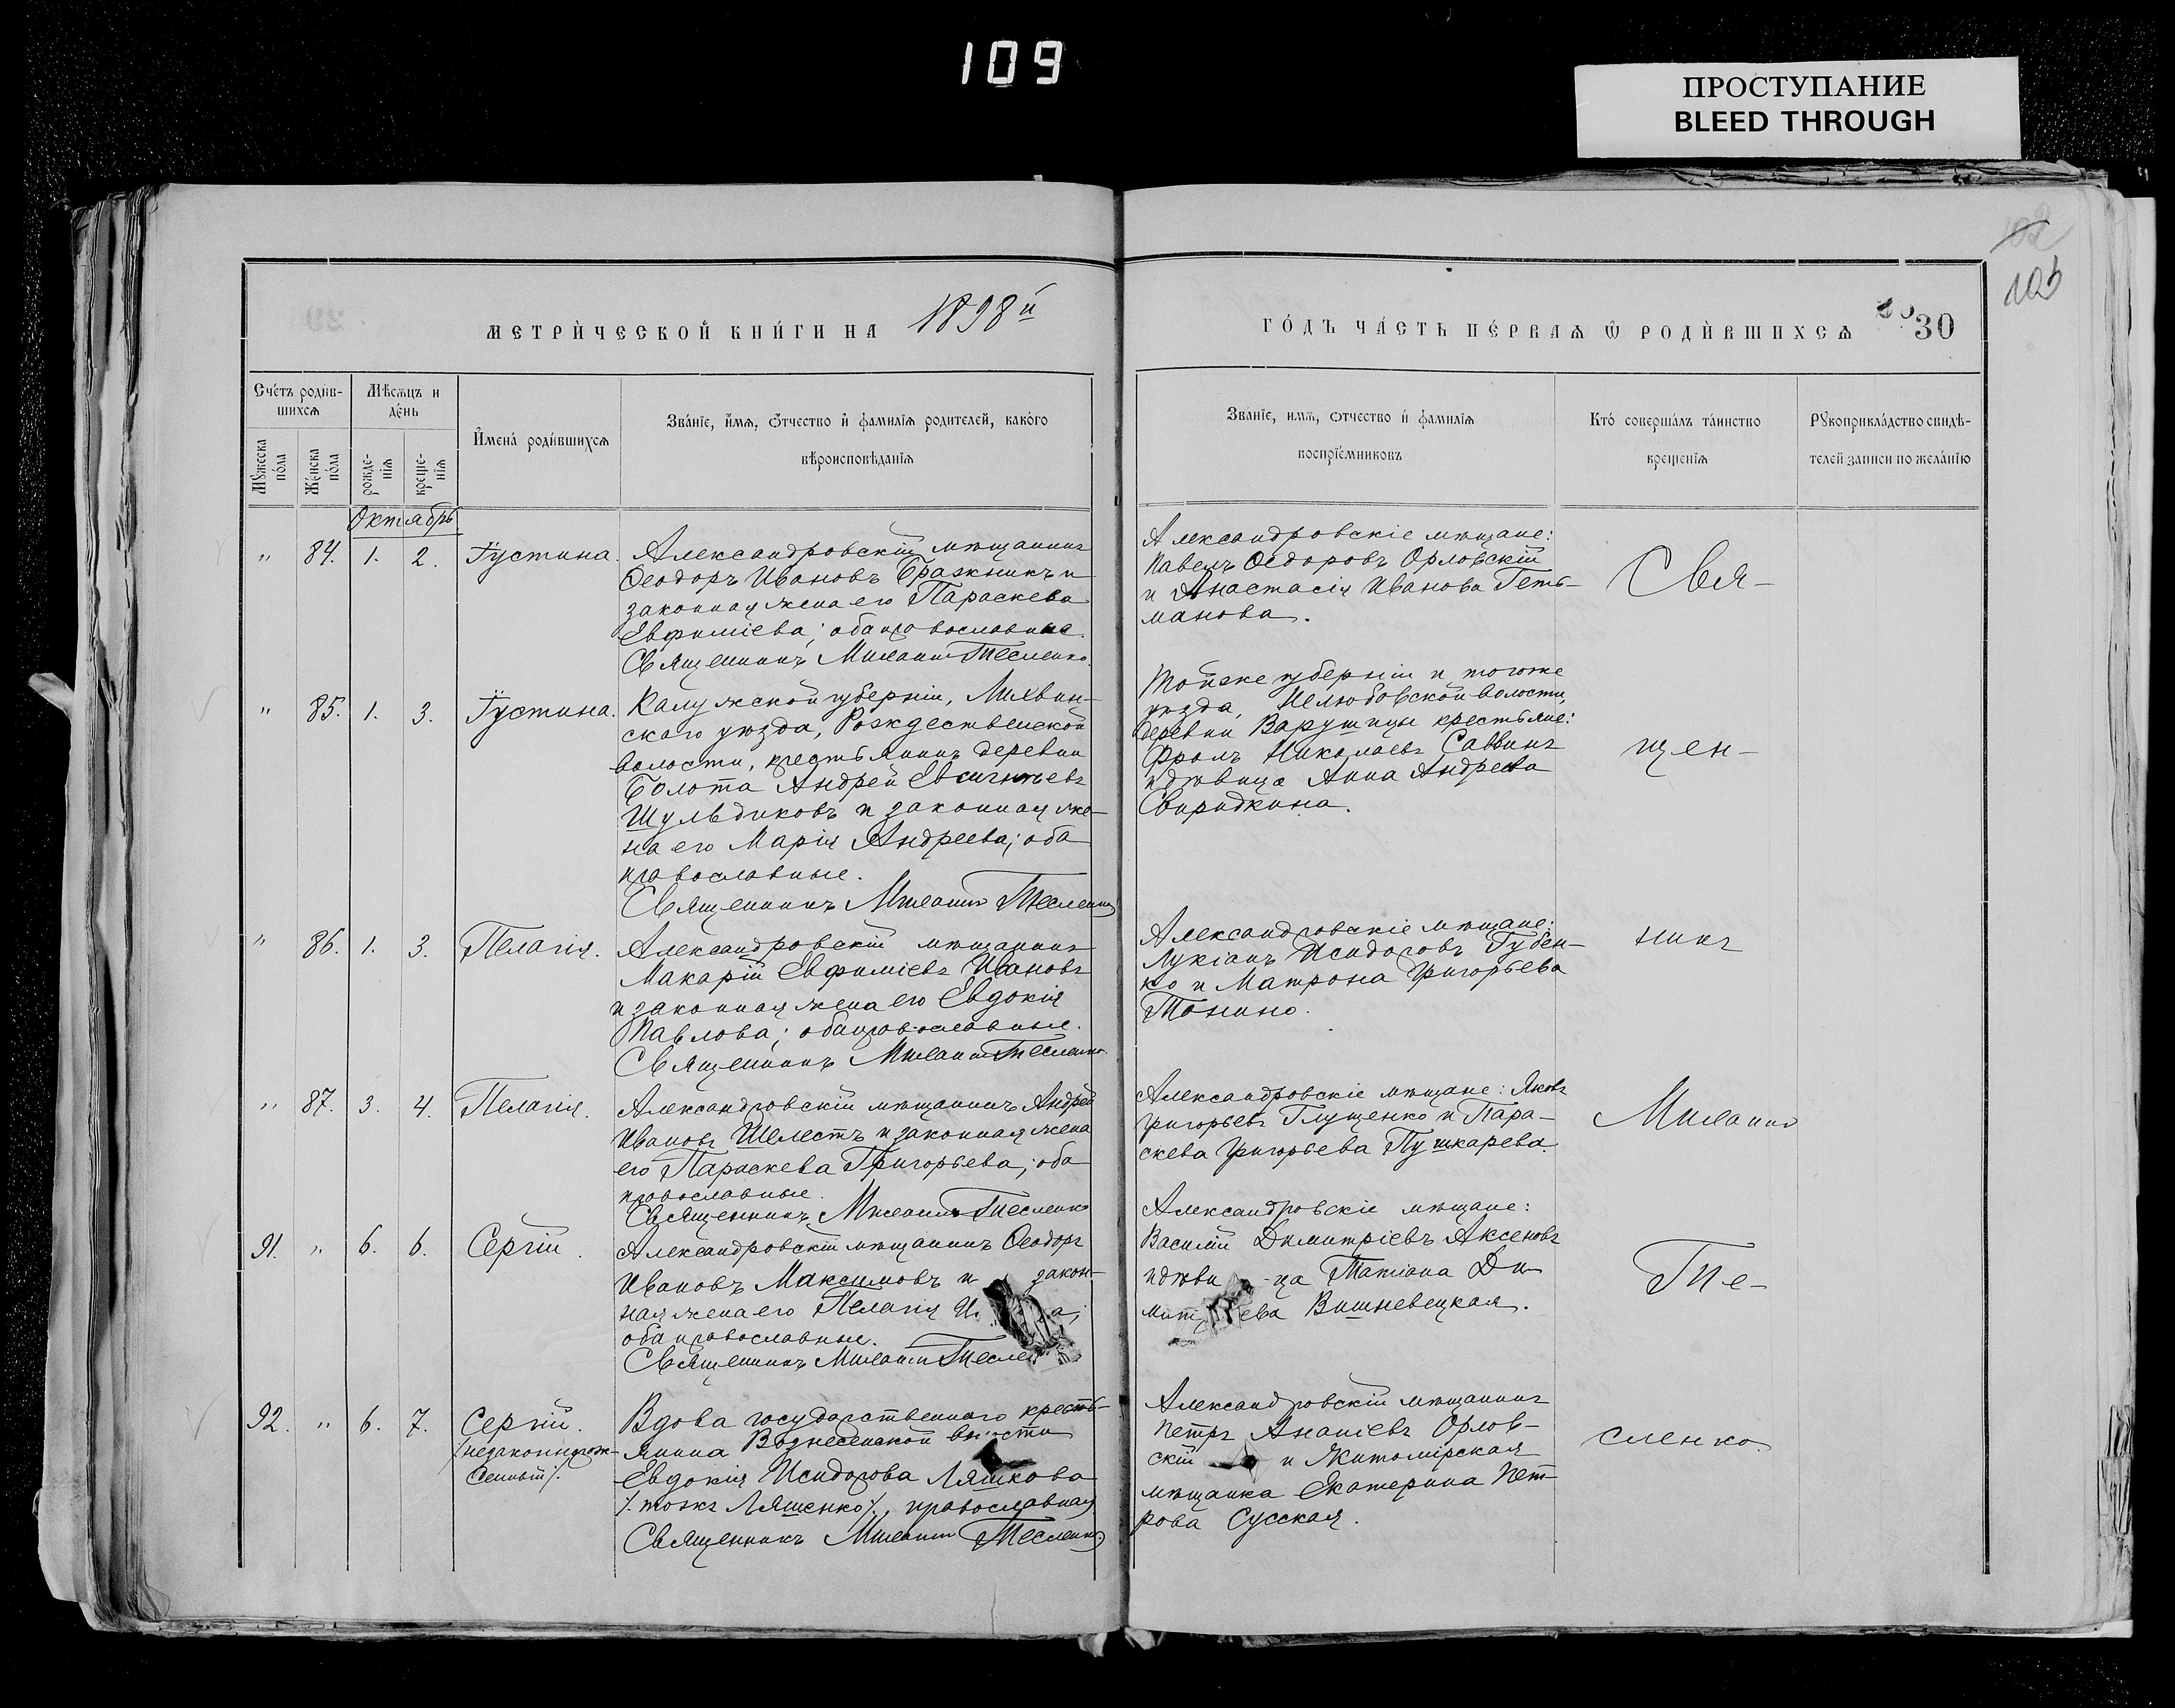 109
ПРОСТУПАНИЕ
BLEED THROUGH
103
МЕТРИЧЕСКОЙ КНИГИ НА 1898й
ГОДЪ ЧАСТЬ ПЕРВАЯ Ѡ РОДИВШИХСЯ 30
Счетъ родив-
шихся
Мѣсяцъ и
день
Мужеска
пола
Женска
пола
рожде-
нія
креще-
нія
Имена родившихся
Званіе, имя, отчество и фамилія родителей, какого
вѣроисповѣданія
Званіе, имя, отчество и фамилія
воспріемниковъ
Кто совершалъ таинство
крещенія
Рукоприкладство свидѣ-
телей записи по желанію
Октябрь
" 84. 1. 2. Іустина.
Александровскій мѣщанинъ
Ѳеодоръ Ивановъ Бражникъ и
законная жена его Параскева
Евфиміева; оба православные.
Священникъ Милантій Тесленко.
Александровскіе мѣщане:
Павелъ Ѳедоровъ Орловскій
и Анастасія Иванова Геть-
манова.
Свя-
" 85. 1. 3. Іустина.
Калужской губерніи, Лихвин-
скаго уѣзда, Рождественской
волости, крестьянинъ деревни
Болота Андрей Евсигнѣевъ
Шульдиковъ и законная же-
на его Марія Андреева; оба
православные.
Священникъ Тесленко
Тойже губерніи и тогоже
уѣзда, Нелюбовской волости,
деревни Варушицы крестьяне:
Фролъ Николаевъ Саввинъ
и дѣвица Анна Андреева
Свиридкина.
щен-
" 86. 1. 3. Пелагія.
Александровскій мѣщанинъ
Макарій Евфиміевъ Ивановъ
и законная жена его Евдокія
Павлова; оба православные.
Священникъ Тесленко.
Александровскіе мѣщане:
Лукіанъ Исидоровъ Губен-
ко и Матрона Григорьева
Тонино.
никъ
" 87. 3. 4. Пелагія.
Александровскій мѣщанинъ Андрей
Ивановъ Шелестъ и законная жена
его Параскева Григорьева; оба
православные.
Священникъ Тесленко
Александровскіе мѣщане: Яковъ
Григорьевъ Глущенко и Пара-
скева Григорьева Пушкарева.
91. " 6. 6. Сергій.
Александровскій мѣщанинъ Ѳеодоръ
Ивановъ Максимовъ и закон-
ная жена его Пелагія
оба православные.
Священникъ
Александровскіе мѣщане:
Василій Димитріевъ Аксеновъ
и дѣви-ца Татіана Ди-
мит ева Вишневецкая.
Те-
92. " 6. 7. Сергій.
/незаконнорож-
денный/.
Вдова государственнаго кресть-
янина Вознесенской волости
Евдокія Исидорова Ляшкова
/тожъ Ляшенко/, православная
Священникъ Тесленко
Александровскій мѣщанинъ
Петръ Ананіевъ Орлов-
скій и Житомірская
мѣщанка Екатерина Пет-
рова Сусская.
сленко.